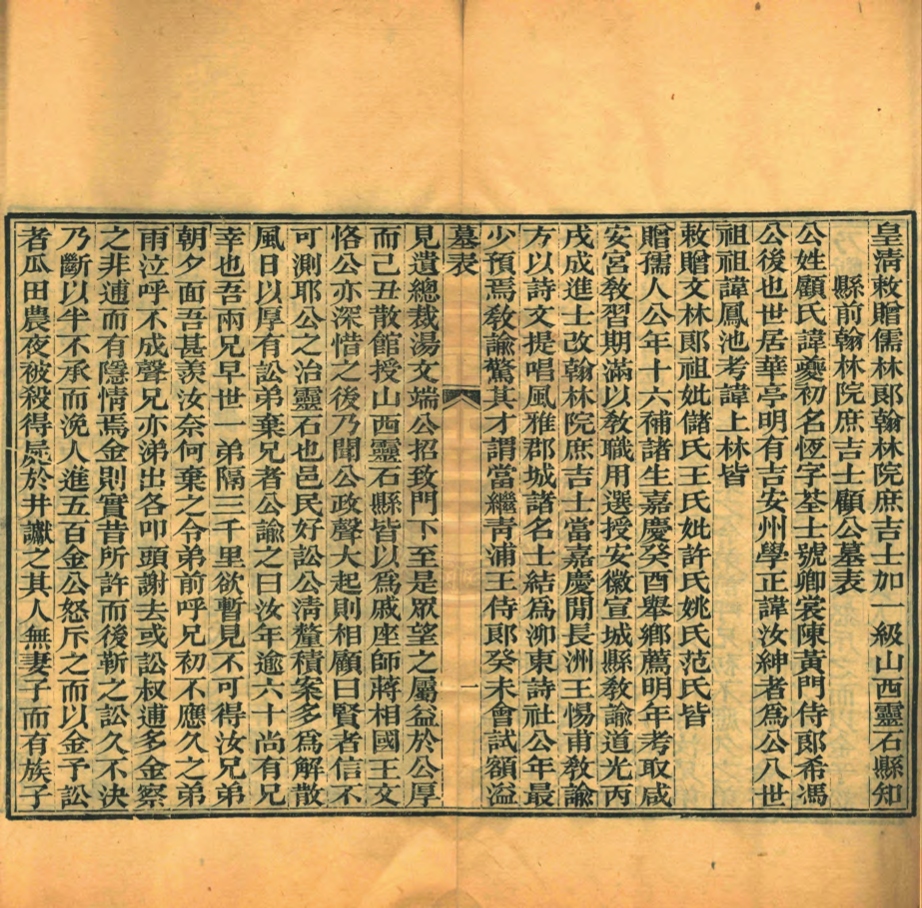 皇清敕贈儒林郎翰林院庶吉士加一級山西靈石縣知
縣前翰林院庶吉士顧公墓表
公姓顧氏諱夔初名恆字荃士號卿裳陳黃門侍郎希馮
公後也世居華亭明有吉安州學正諱汝紳者為公八世
祖祖諱鳳池考諱上林皆
敕贈文林郎祖妣儲氏王氏妣許氏姚氏范氏皆
贈孺人公年十六補諸生嘉慶癸酉舉鄉薦明年考取咸
安宮教習期滿以教職用選授安徽宣城縣教諭道光丙
戌成進士改翰林院庶吉士當嘉慶閒長洲王惕甫教諭
方以詩文提唱風雅郡城諸名士結為泖東詩社公年最
少預焉教諭驚其才謂當繼靑浦王侍郎癸未會試額溢
墓表
一
見遺總裁湯文端公招致門下至是眾望之屬益於公厚
而己丑散館授山西靈石縣皆以為戚座師蔣相國王文
恪公亦深惜之後乃聞公政聲大起則相顧曰賢者信不
可測耶公之治靈石也邑民好訟公清釐積案多為解散
風日以厚有訟弟棄兄者公諭之曰汝年逾六十尚有兄
幸也吾兩兄早世一弟隔三千里欲暫見不可得汝兄弟
朝夕面吾甚羨汝奈何棄之令弟前呼兄初不應久之弟
雨泣呼不成聲兄亦涕出各叩頭謝去或訟叔逋多金察
之非逋而有隱情焉金則實昔所許而後靳之訟久不決
乃斷以半不承而浼人進五百金公怒斥之而以金予訟
者瓜田農夜被殺得屍於井讞之其人無妻子而有族子